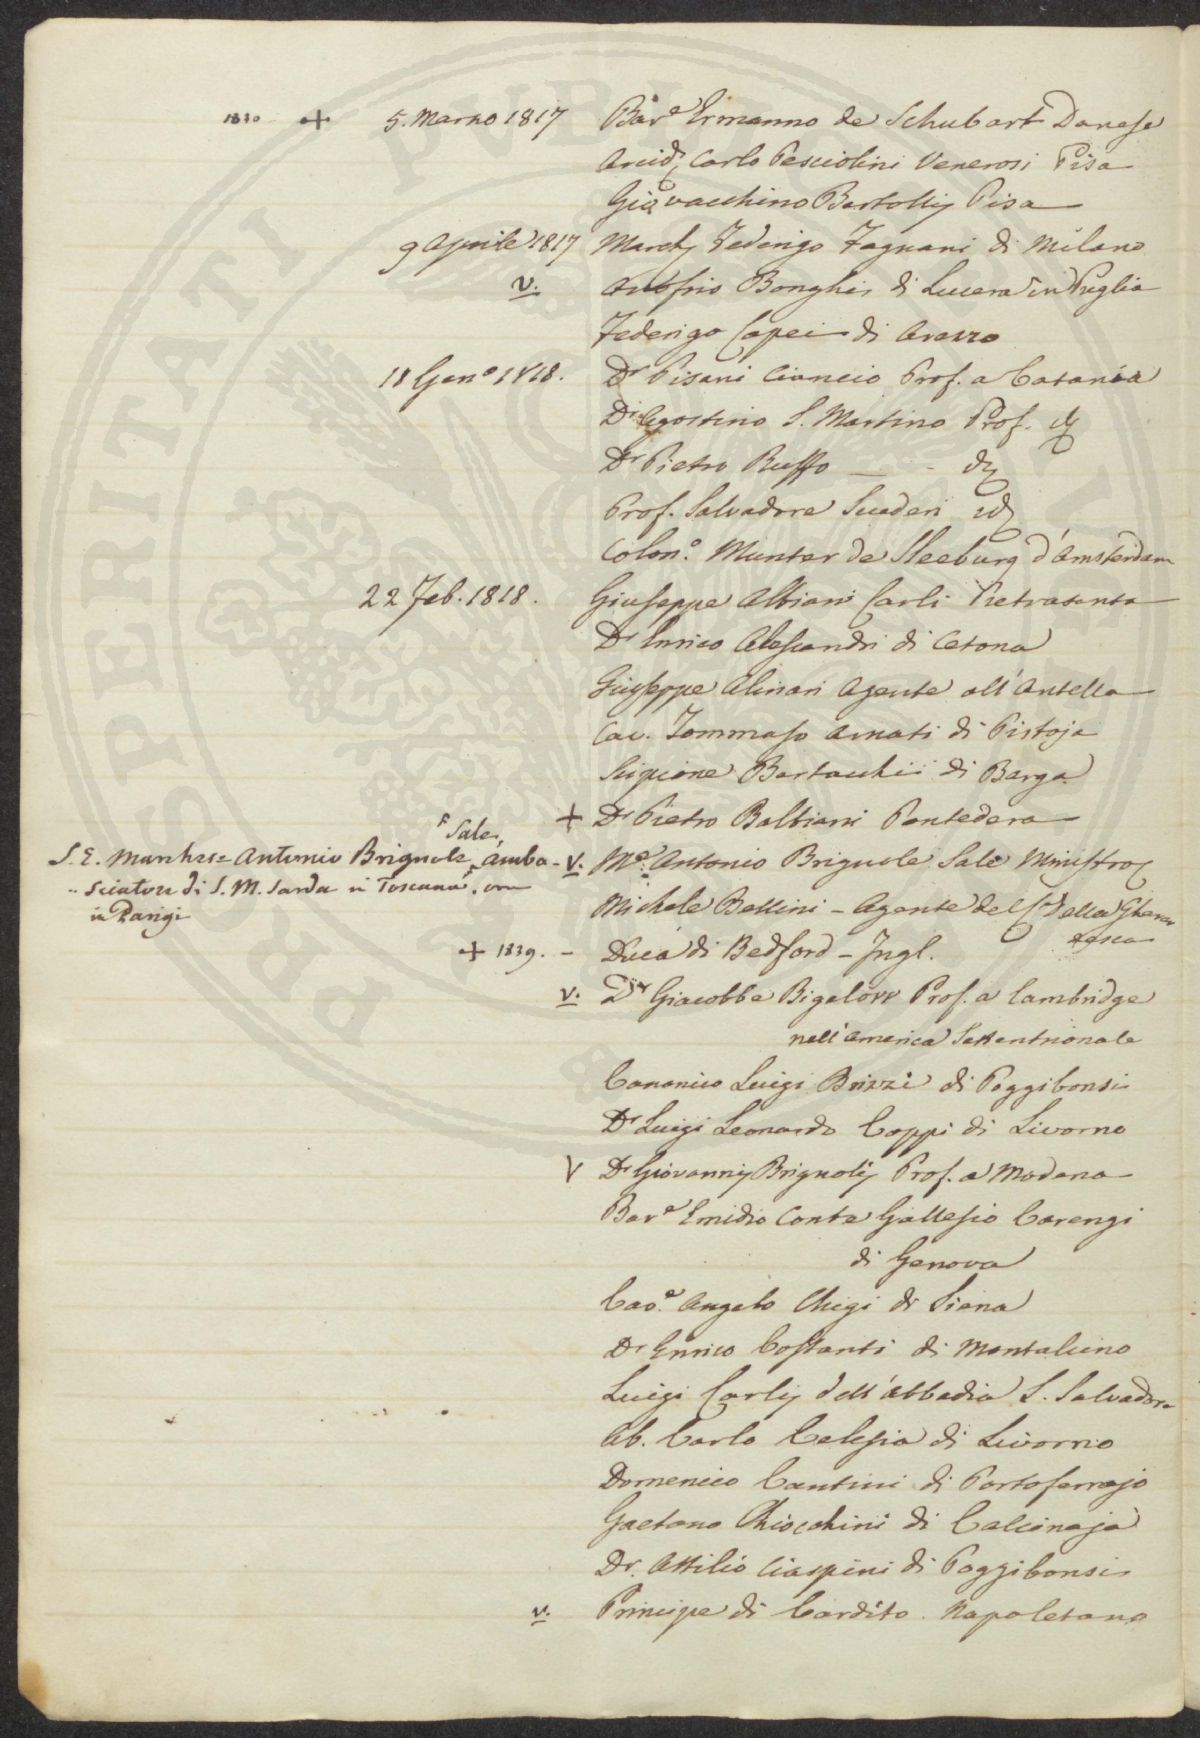 1830 + 5. Marzo 1817 Bar.e Ermanno de Schubart Danese
Arcid. Carlo Pesciolini Venerosi Pisa
Giovacchino Bertollij Pisa
9 Aprile 1817 March. Federigo Fagnani di Milano
v. Onofrio Bonghi di Lucera in Puglia
Federigo Capei di Arezzo
18 Gen.o 1818. Dr Pisani Ciancio Prof. a Catania
Dr Agostino S. Martino Prof. id
Dr Pietro Ruffo — - id
Prof. Salvadore Scuderi id
Colon.o Munter de Sleeburg d'Amsterdam
22 Feb. 1818. Giuseppe Albiani Carli Pietrasanta
Dr Enrico Alessandri di Cetona
Giuseppe Alinari Agente all'Antella
Cav. Tommaso Arnati di Pistoja
Scipione Bertacchi di Barga
+ Dr Pietro Balbiani Pontedera
Sale,
S. E. Marchese Antonio Brignole, Amba- v. M.e Antonio Brignole Sale Ministro
sciatore di S. M. Sarda in Toscana, ora
in Parigi
Michele Bellini - Agente del C. Della Gherar
desca
+ 1839. - Duca di Bedford - Ingl.
v. Dr Giacobbe Bigelow Prof. a Cambridge
nell'America Settentrionale
Canonico Luigi Brizzi di Poggibonsi
Dr Luigi Leonardo Coppi di Livorno
V Dr Giovannij Brignolij Prof. a Modena
Bar.e Emidio Conte Gallesio Carengi
di Genova
Cav.e Angelo Chigi di Siena
Dr Enrico Costanti di Montalcino
Luigi Carlij dell'Abbadia S. Salvadore
Ab. Carlo Celesia di Livorno
Domenico Cantini di Portoferrajo
Gaetano Chiocchini di Calcinaja
Dr. Attilio Ciaspini di Poggibonsi
v. Principe di Cardito Napoletano
PROSPERITATI PUBLICAE